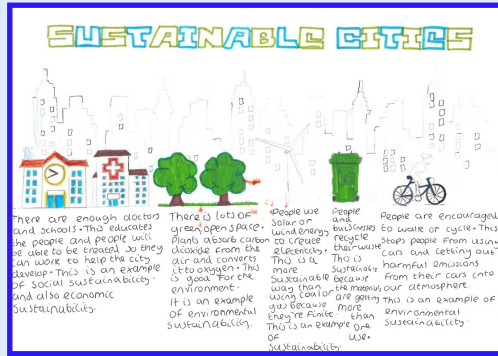 SUSTAINABLE CITIES
There are enough doctors
and schools. This educates
the people and people will
be able to be treated so they
can work to help the city
develop. This is an example
of social sustainability.
and also economic
Sustainability.
There is lots of
green, open space.
Plants absorb carbon
dioxide from the
air and converts
it to oxygen. This
is good for the
environment.
It is an example
of environmental
sustainability.
People use
solar or
wind energy
to create
electricity.
This is a
more
Sustainable
way than
using coal or
gas because
they're finite.
This is an example
of
sustainability.
People
and
businesses
recycle
their waste.
This is
Sustainable
because
the materials
are getting
more
than
one
use.
People are encouraged
to walk or cycle. This
stops people from using
cars and letting out
harmful emissions
from their cars into
our atmosphere
This is an example of
environmental
sustainability.